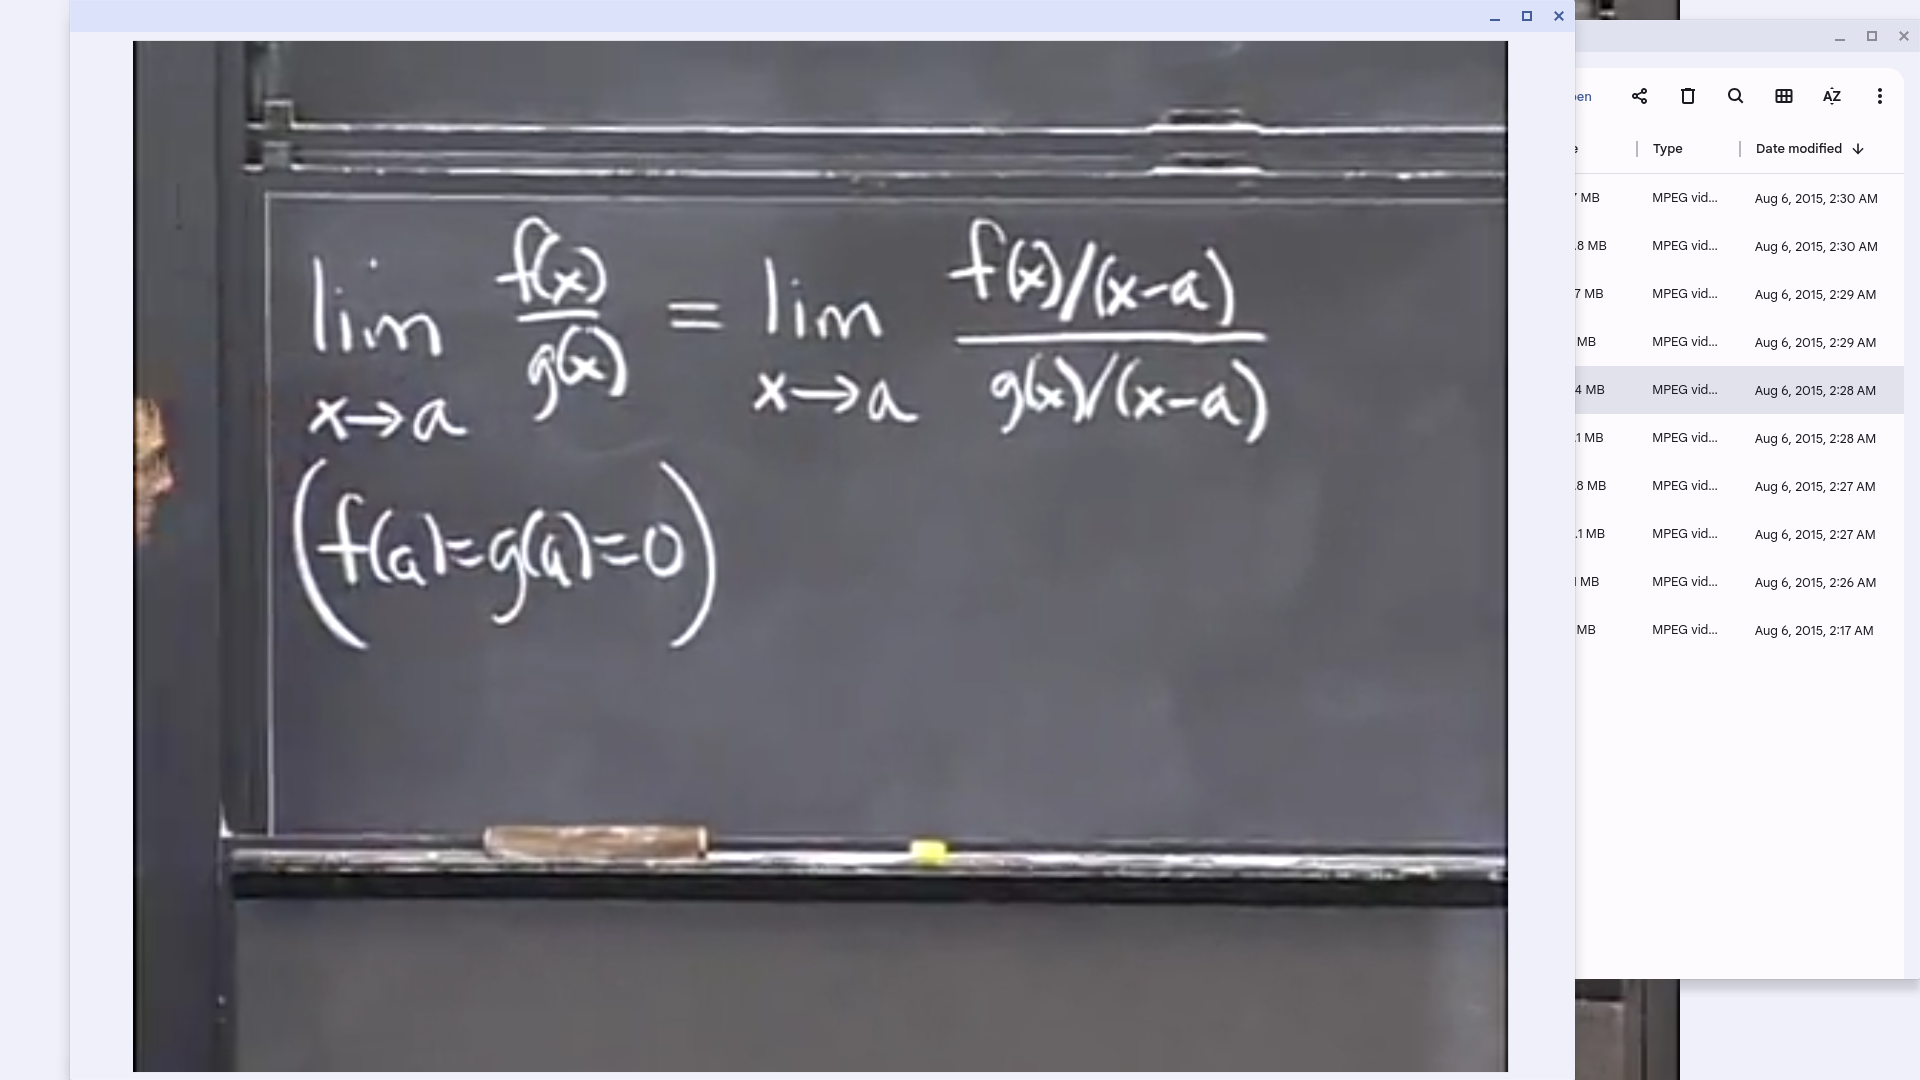 lim x→a f(x)/g(x) = lim x→a (f(x)/(x-a))/(g(x)/(x-a))
(f(a)=g(a)=0)
Type Date modified
MB MPEG vid... Aug 6, 2015, 2:30 AM
.8 MB MPEG vid... Aug 6, 2015, 2:30 AM
7 MB MPEG vid... Aug 6, 2015, 2:29 AM
MB MPEG vid... Aug 6, 2015, 2:29 AM
4 MB MPEG vid... Aug 6, 2015, 2:28 AM
.1 MB MPEG vid... Aug 6, 2015, 2:28 AM
.8 MB MPEG vid... Aug 6, 2015, 2:27 AM
.1 MB MPEG vid... Aug 6, 2015, 2:27 AM
MB MPEG vid... Aug 6, 2015, 2:26 AM
MB MPEG vid... Aug 6, 2015, 2:17 AM